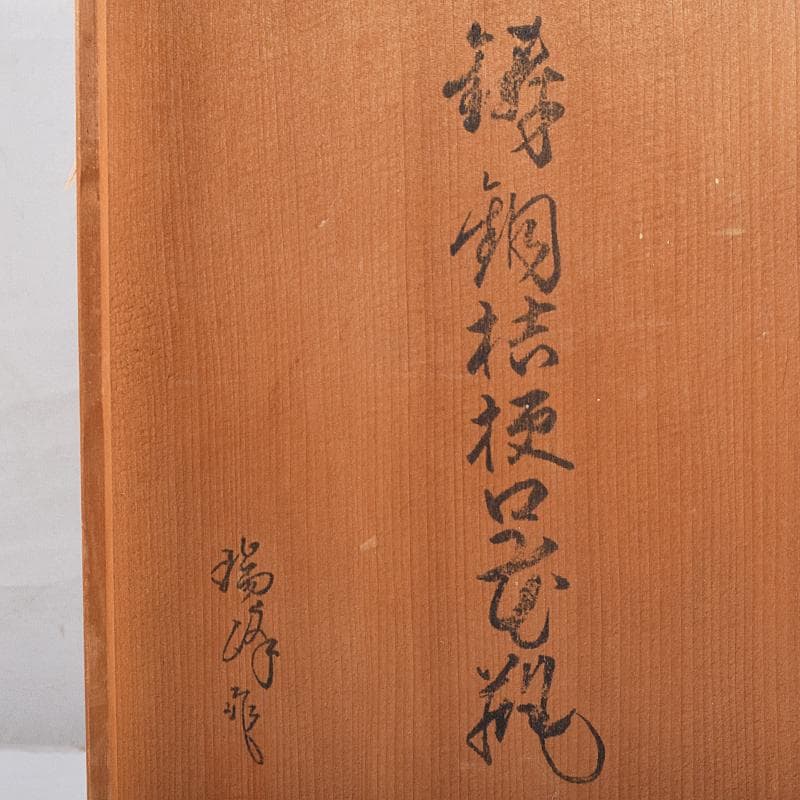 鋳銅桔梗口花瓶
瑞峰作